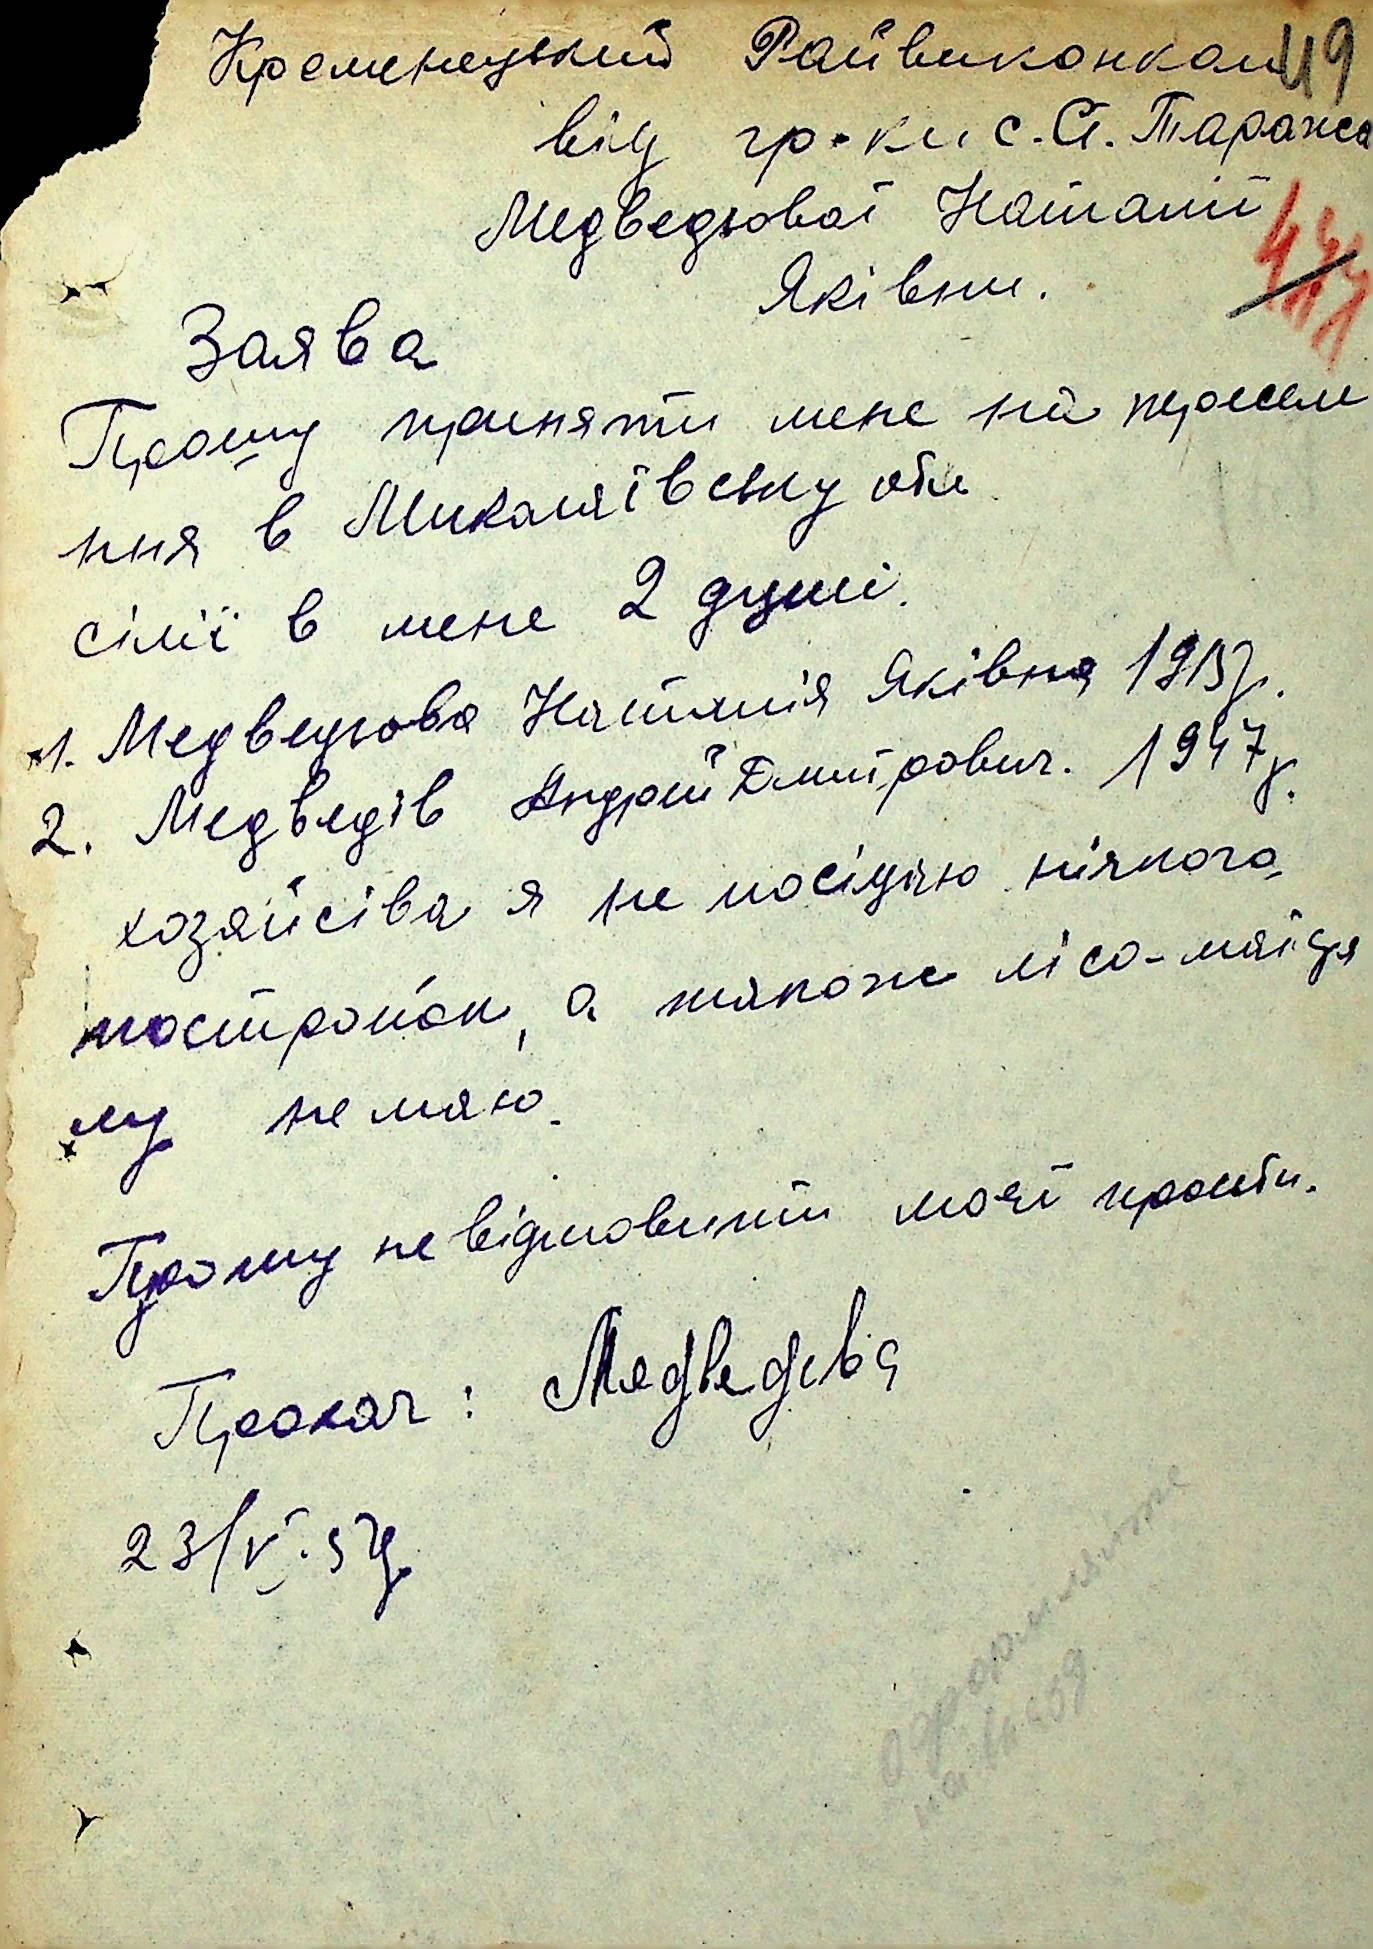 Кременецький Райвиконком 49
від гр-ки с. Ст. Таража
Медведьової Наталії
Яківни.
Заява
Прошу приняти мене на пересел
ння в Миколаївську обл
сімї в мене 2 душі.
1. Медведьова Наталія Яківна 1915р.
2. Медведів Андрій Дмитрович. 1947р.
хозяйсіва я не посідаю ніякого,
постройок, а також лісо-матіря
лу не маю.
Прошу невідмовити моєї прозьби.
Прохач: Медведєва
23/V.57р
Оформляйте